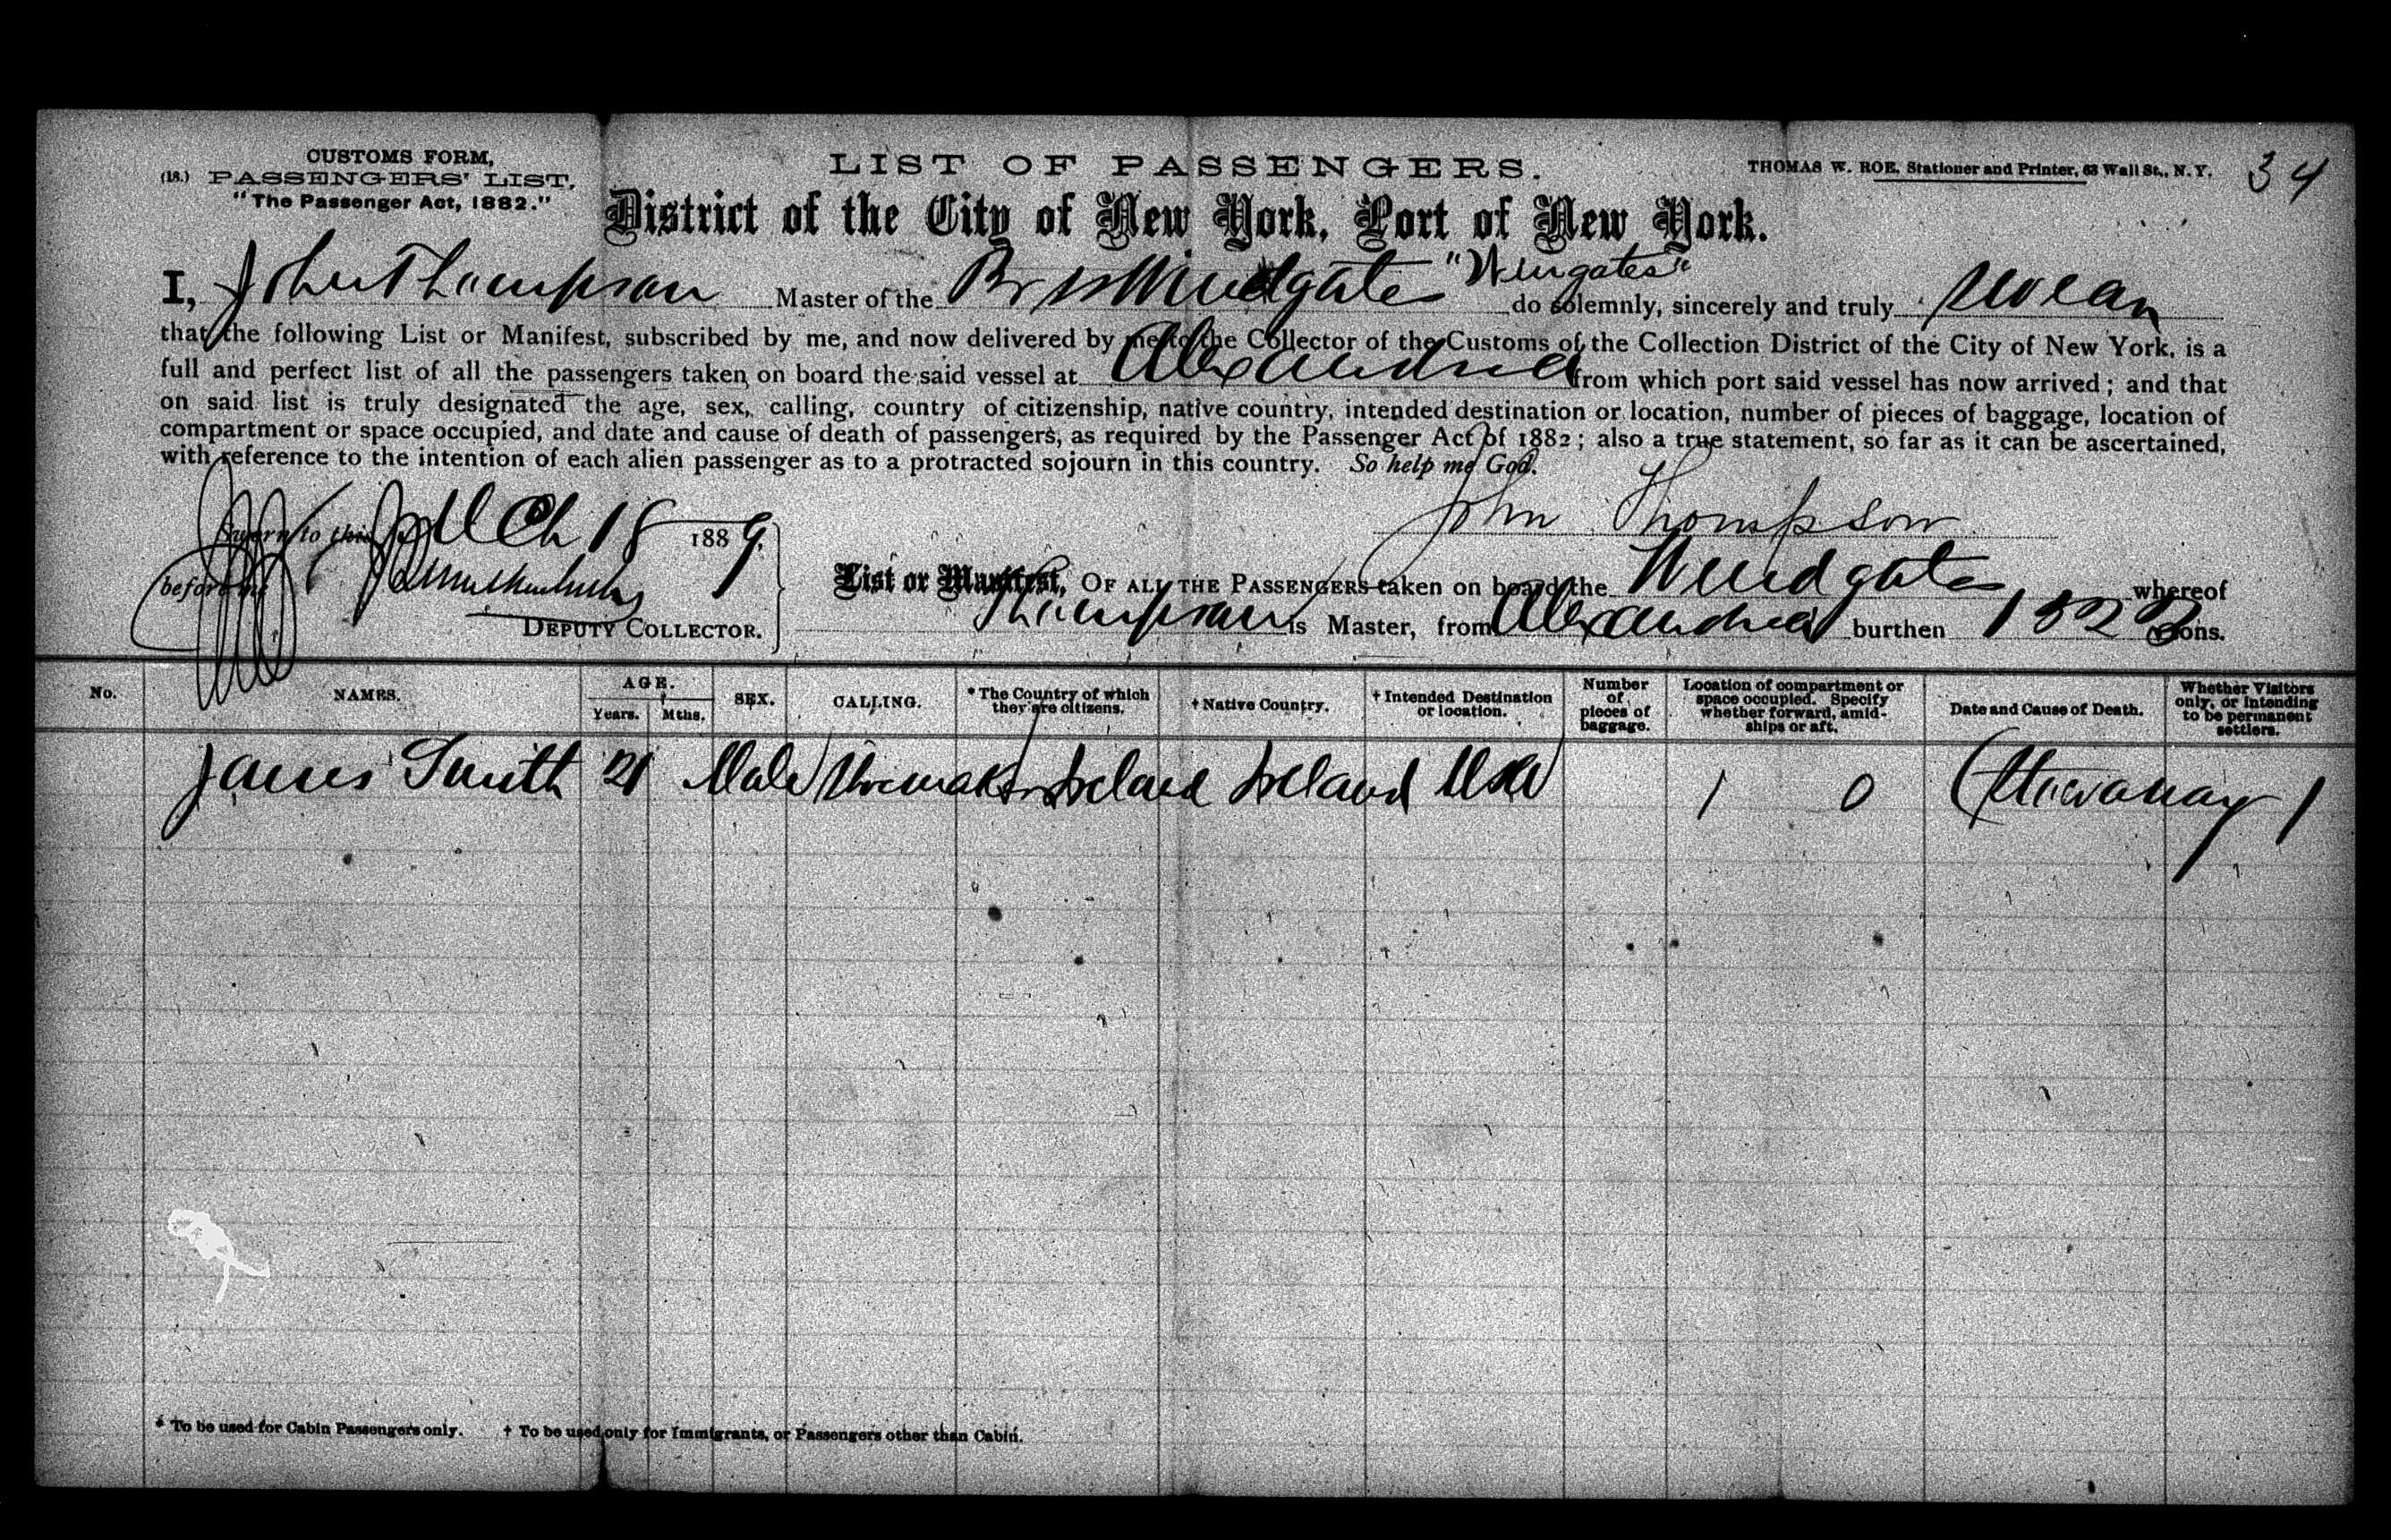 CUSTOMS FORM,
(18.) PASSENGERS' LIST,
"The Passenger Act, 1882."
LIST OF PASSENGERS.
THOMAS W. ROE, Stationer and Printer, 63 Wall St., N.Y.
34
District of the City of New York, Port of New York.
"Wingates"
I, John Thompson Master of the Br ss Windgates do solemnly, sincerely and truly swear
that the following List or Manifest, subscribed by me, and now delivered by me to the Collector of the Customs of the Collection District of the City of New York, is a
full and perfect list of all the passengers taken on board the said vessel at Alexandria from which port said vessel has now arrived; and that
on said list is truly designated the age, sex, calling, country of citizenship, native country, intended destination or location, number of pieces of baggage, location of
compartment or space occupied, and date and cause of death of passengers, as required by the Passenger Act of 1882; also a true statement, so far as it can be ascertained,
with reference to the intention of each alien passenger as to a protracted sojourn in this country. So help me God.
John Thompson
Sworn to this Mch 18 1889,
before me
DEPUTY COLLECTOR.
List or Manifest, OF ALL THE PASSENGERS taken on board the Windgates whereof
Thompson is Master, from Alexandria burthen 1822 tons.
No. NAMES. AGE. Years. Mths. SEX. CALLING. * The Country of which they are citizens. † Native Country. † Intended Destination or location. Number of pieces of baggage. Location of compartment or space occupied. Specify whether forward, amidships or aft. Date and Cause of Death. Whether Visitors only, or intending to be permanent settlers.
James Smith 21 Male Shoemaker Ireland Ireland USA 1 0 (Stowaway) 1
* To be used for Cabin Passengers only. † To be used only for Immigrants, or Passengers other than Cabin.